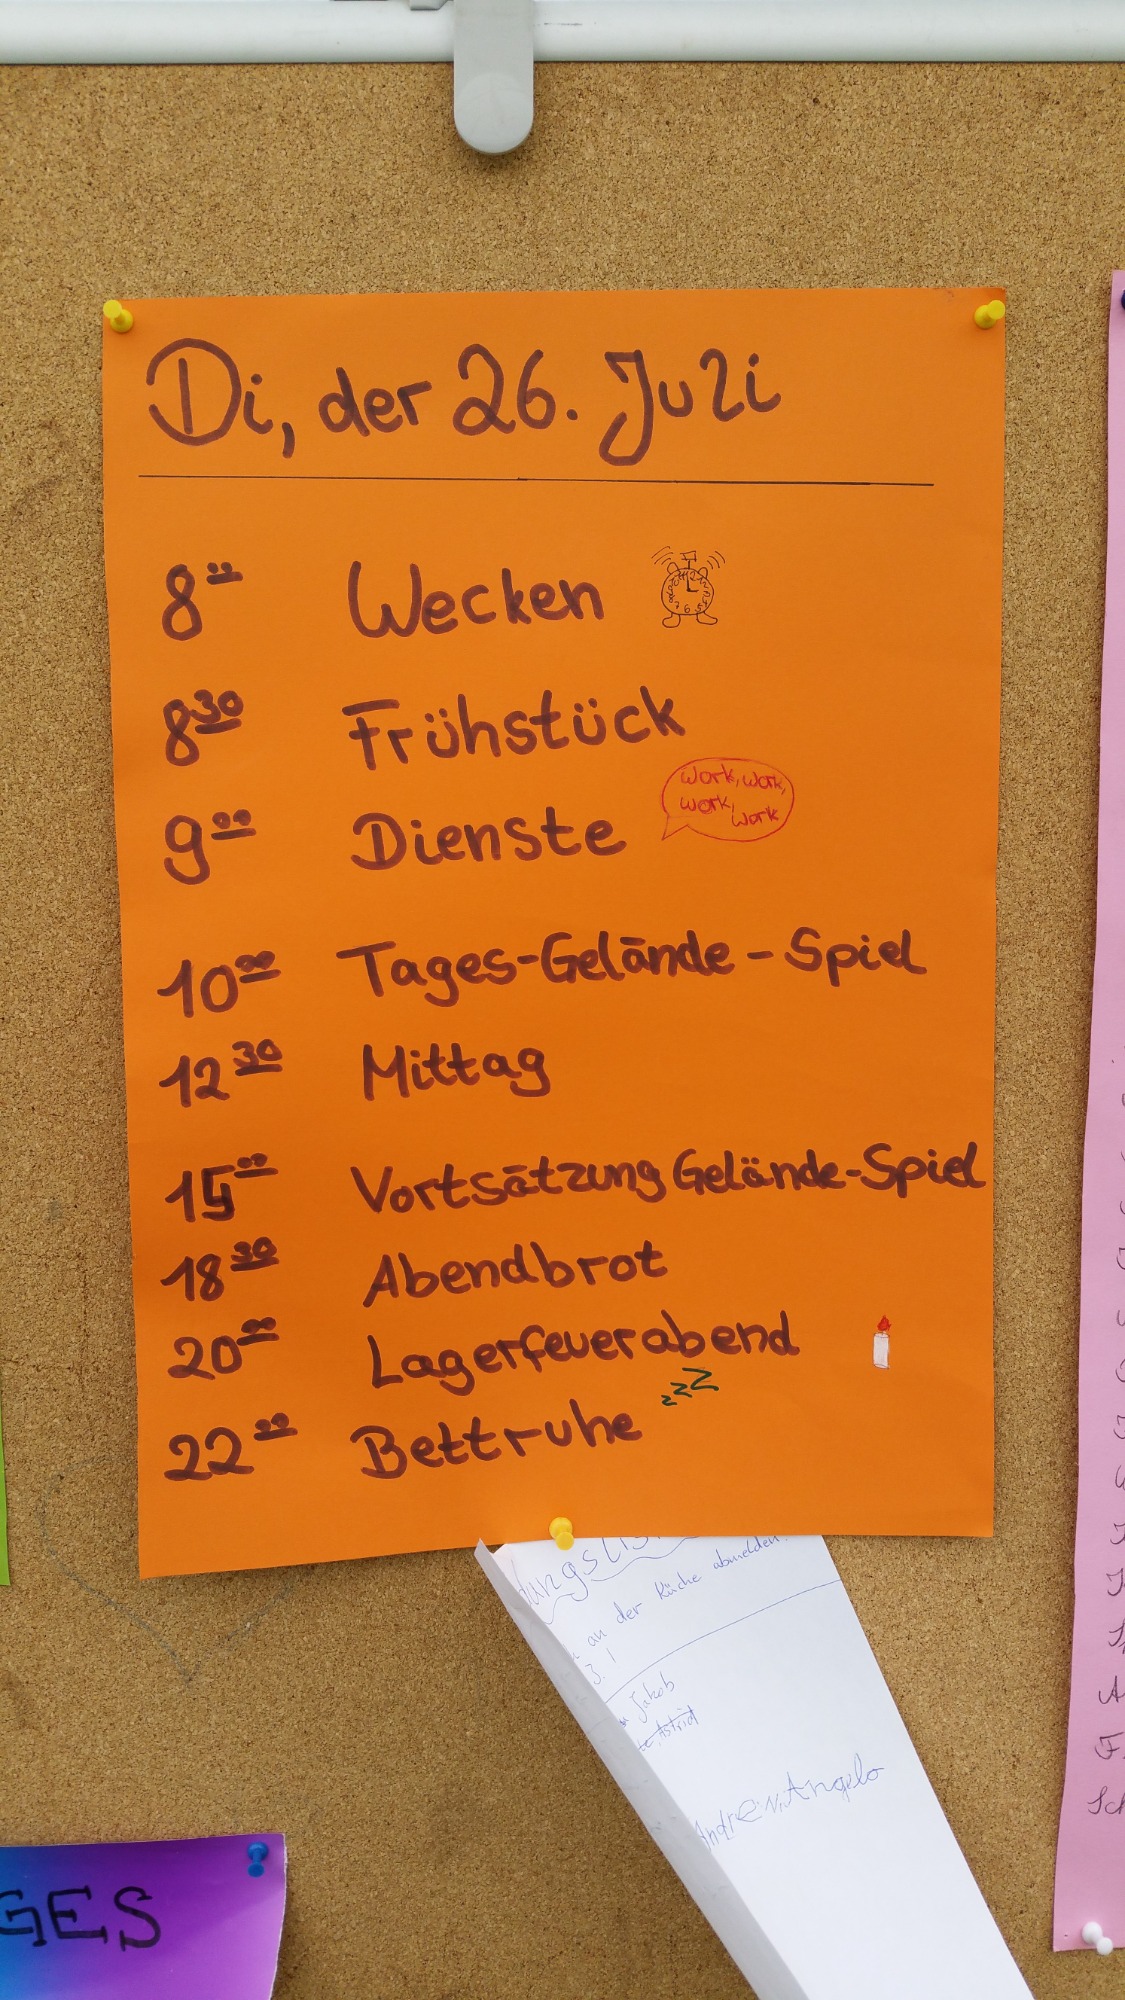 Di, der 26. Juli
8⁰⁰ Wecken
8³⁰ Frühstück
9⁰⁰ Dienste
work, work,
work, work
10⁰⁰ Tages-Gelände-Spiel
12³⁰ Mittag
15⁰⁰ Vortsätzung Gelände-Spiel
18³⁰ Abendbrot
20⁰⁰ Lagerfeuerabend
zzZ
22⁰⁰ Bettruhe
an der Küche abmelden!
Jakob
Astrid
Angelo
GES